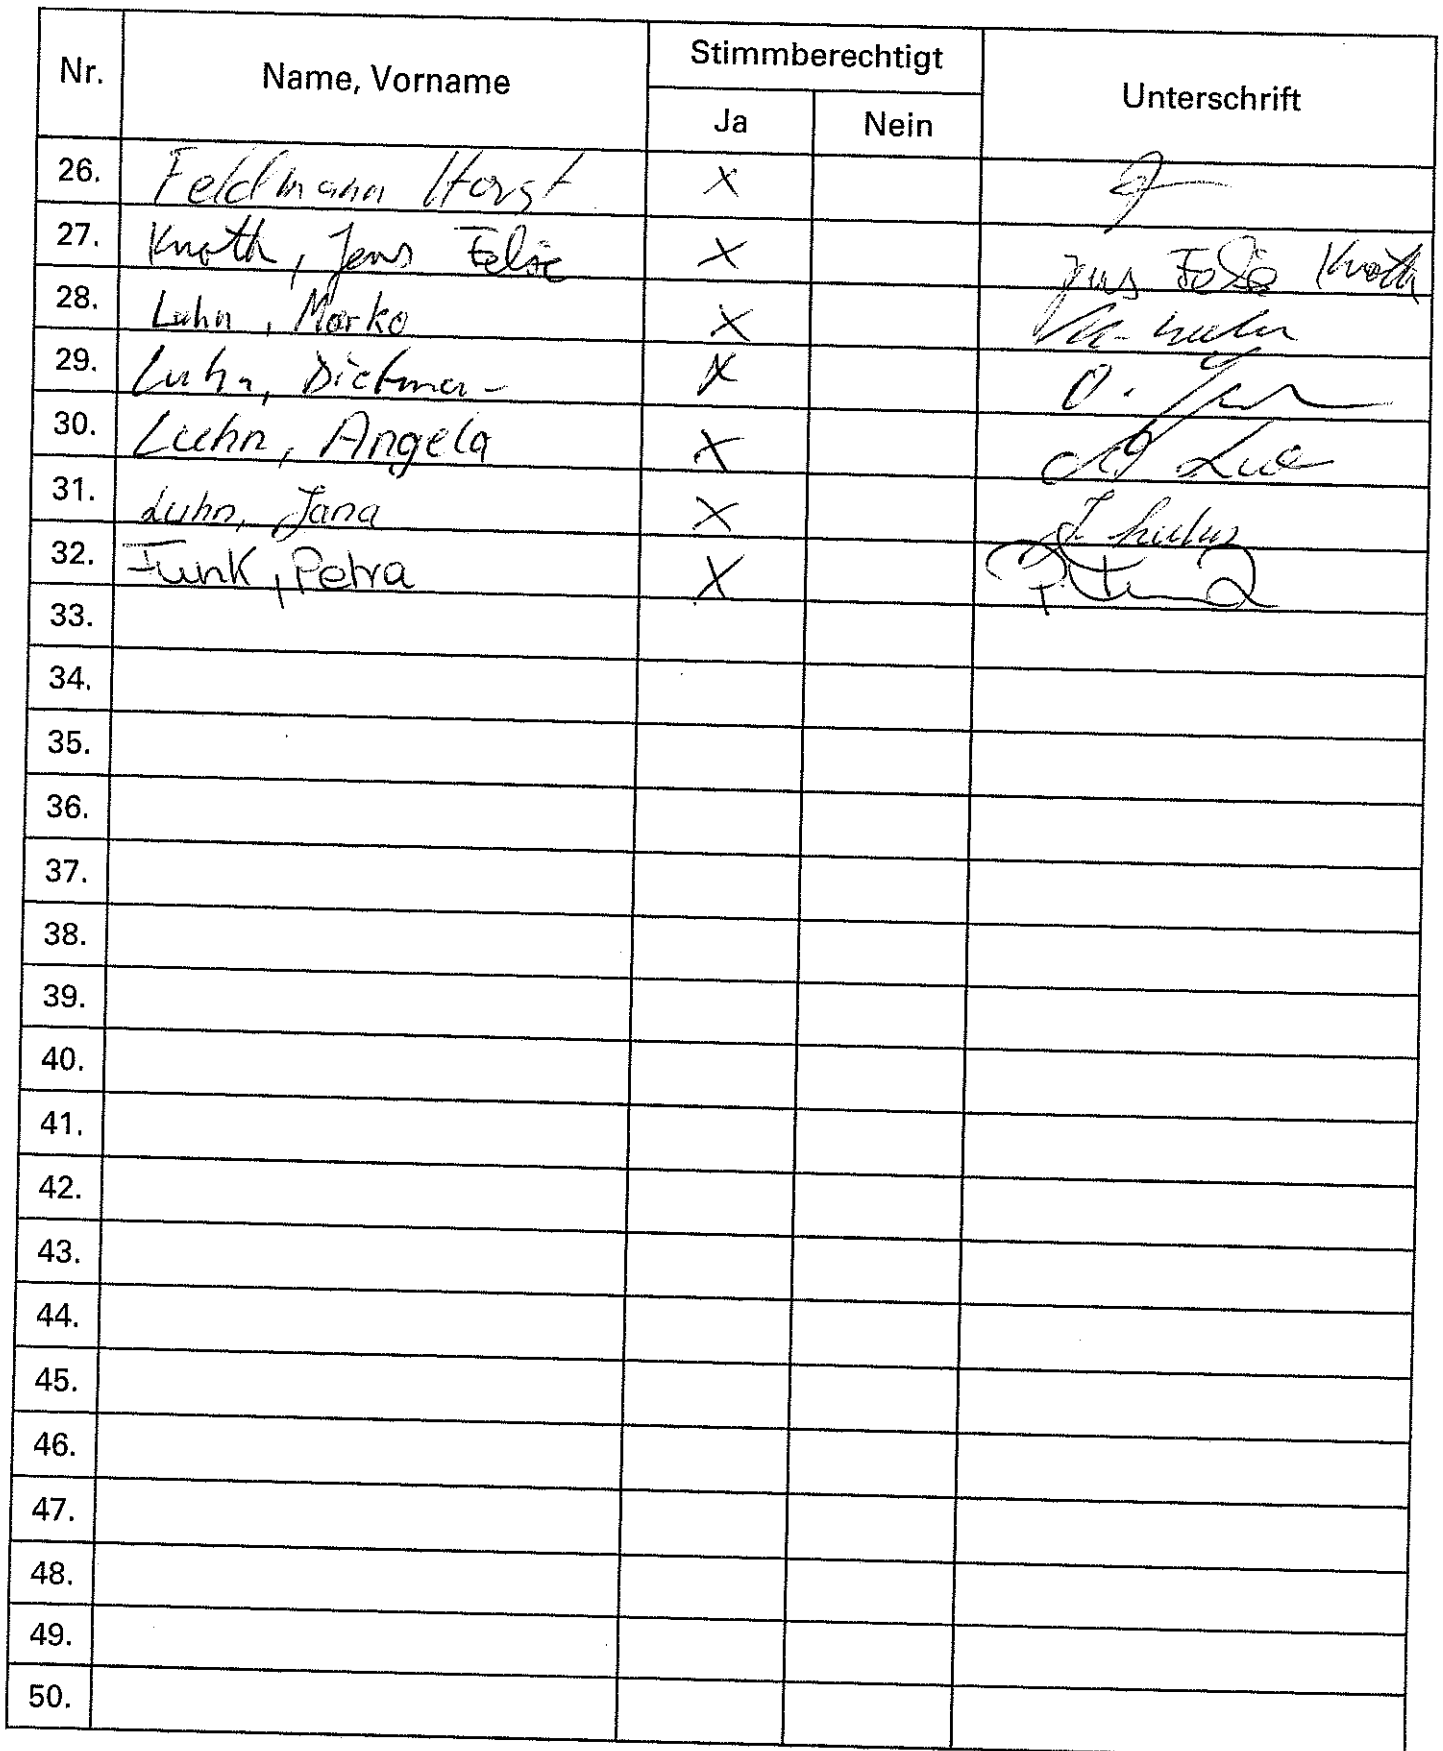 Nr. Name, Vorname Stimmberechtigt Unterschrift
Ja Nein
26. Feldmann Horst X
27. Knoth, Jens Felix X Jens Felix Knoth
28. Luhn, Marko X
29. Luhn, Dietmar X
30. Luhn, Angela X
31. Luhn, Jana X
32. Funk, Petra X
33.
34.
35.
36.
37.
38.
39.
40.
41.
42.
43.
44.
45.
46.
47.
48.
49.
50.